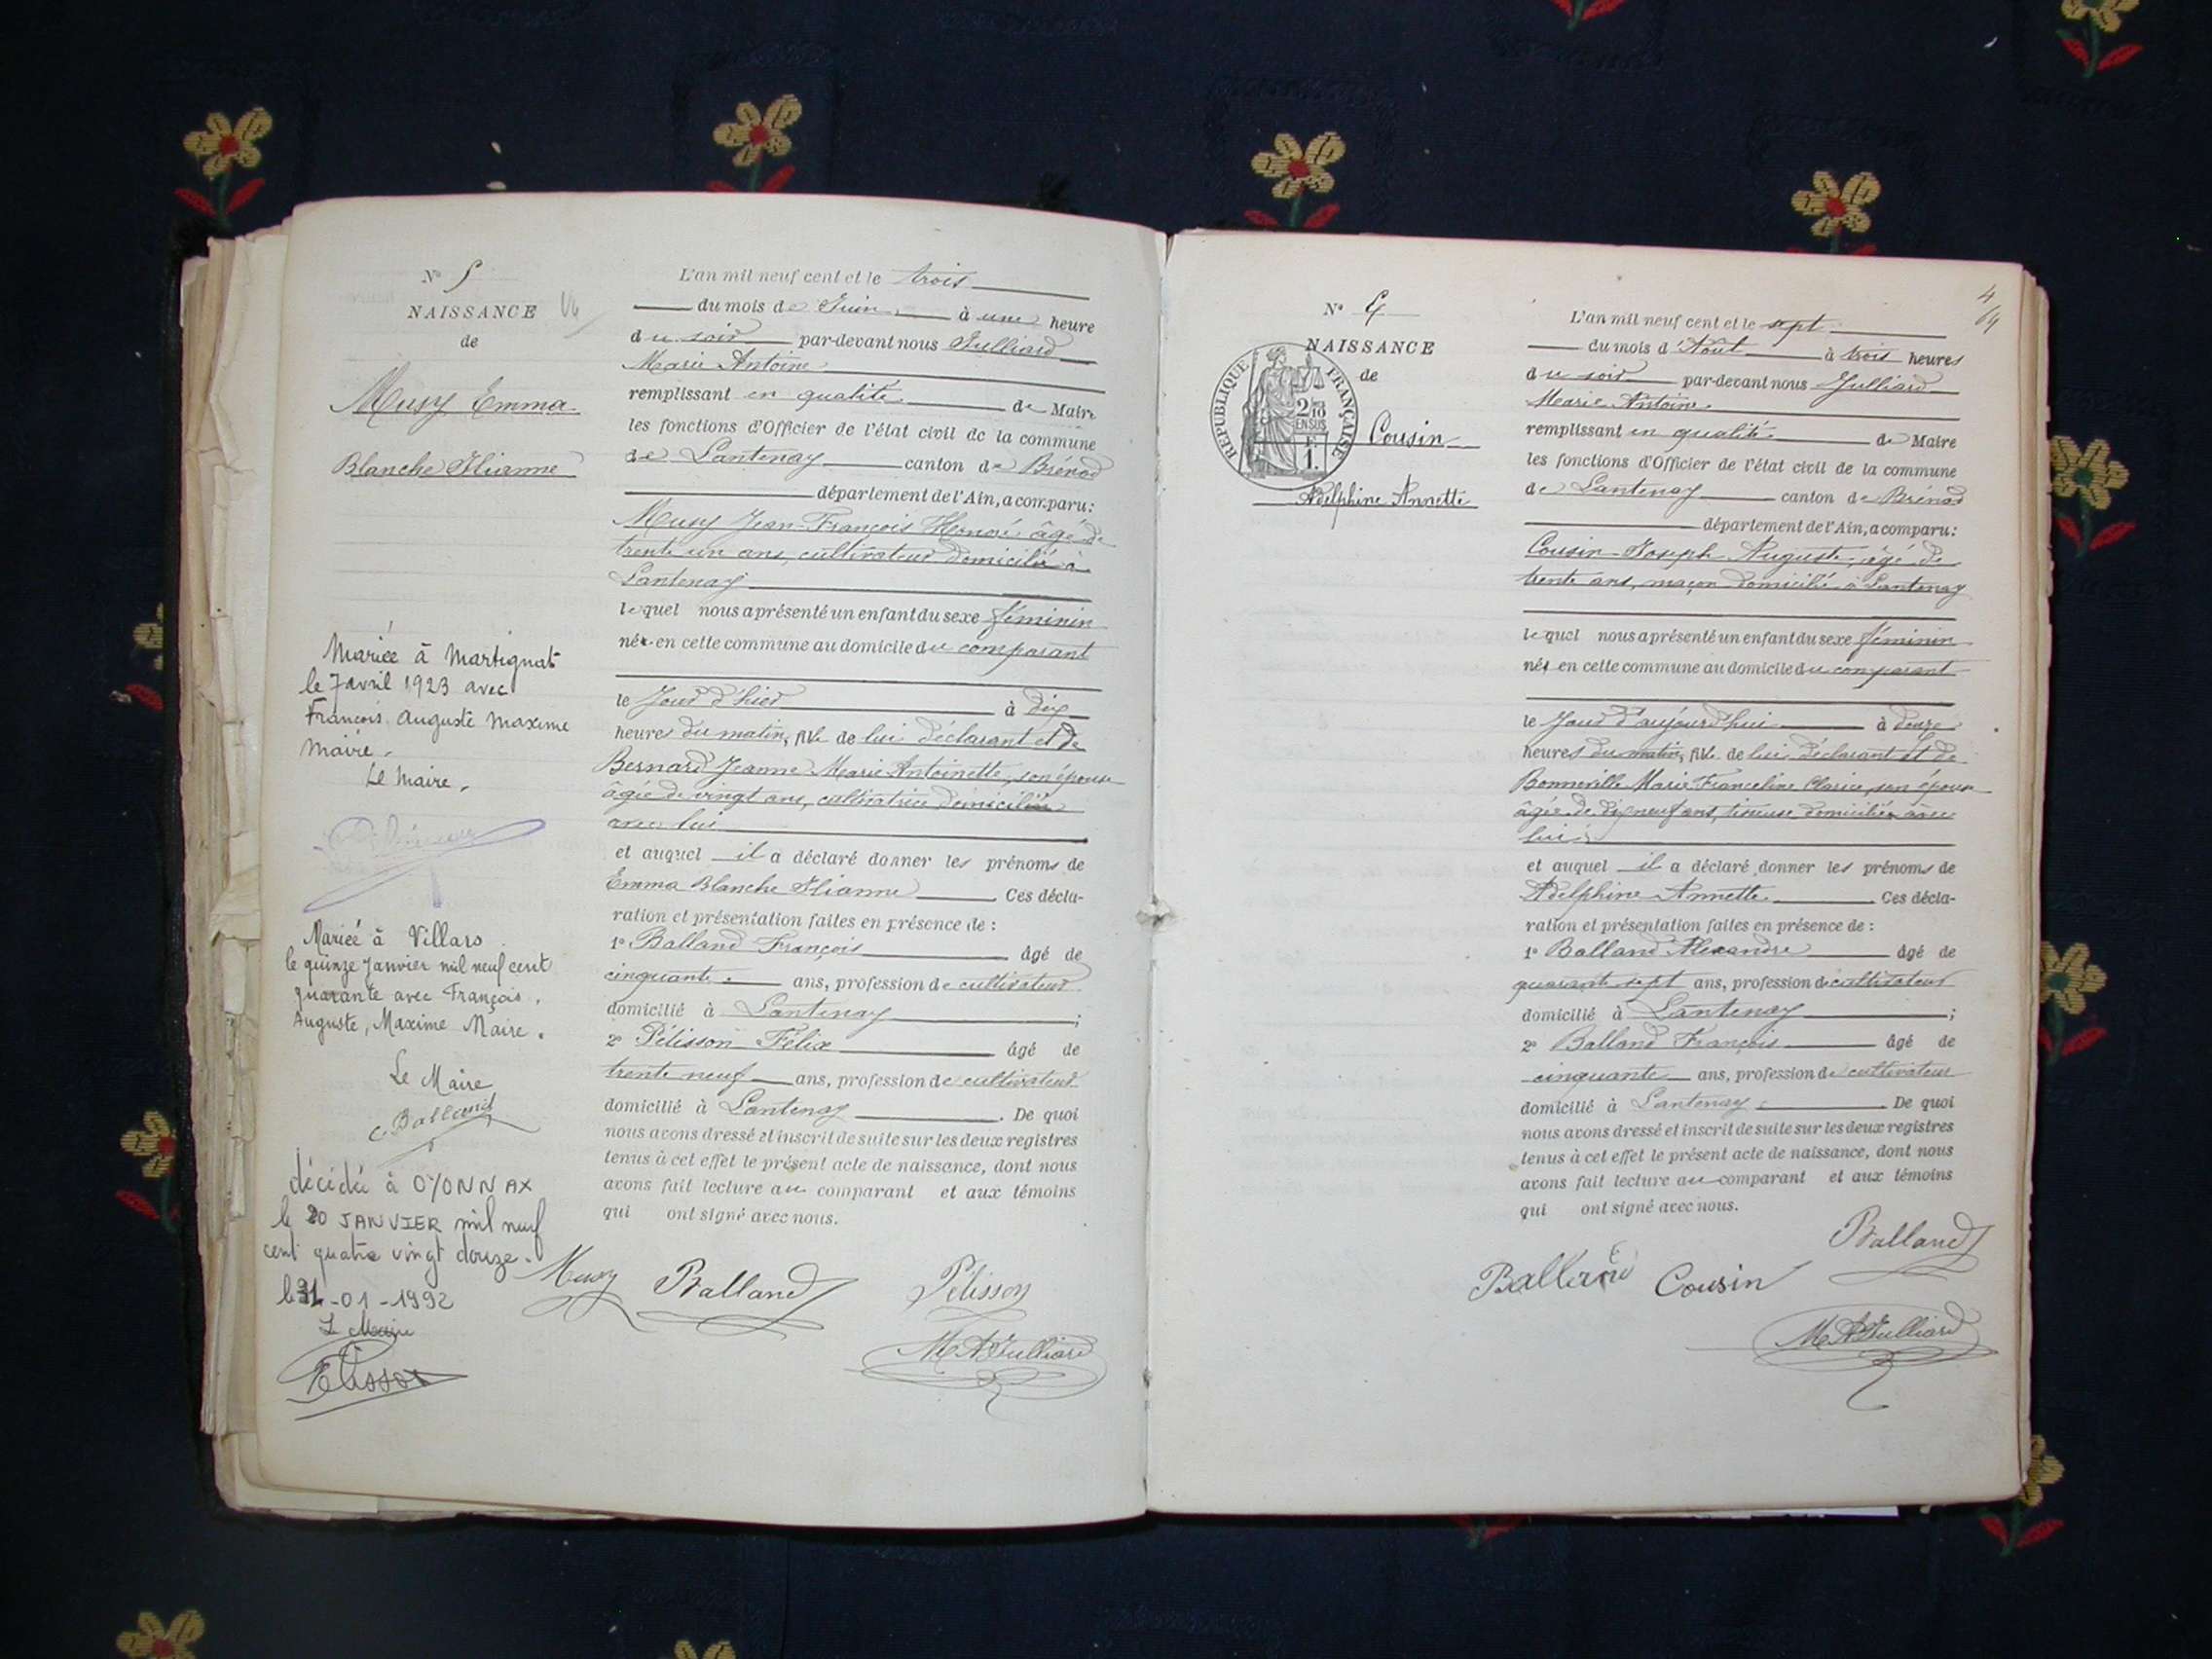 N° 5
NAISSANCE
de
Musy Emma
Blanche
Mariée à Martignat
le 7 avril 1923 avec
François Auguste Maxime
Maire.
Le Maire,
Mariée à Villars
le quinze Janvier mil neuf cent
quarante avec François,
Auguste, Maxime Maire.
Le Maire
Balland
décédée à OYONNAX
le 20 JANVIER mil neuf
cent quatre vingt douze.
le 31-01-1992
Le Maire
Pélisson
L'an mil neuf cent et le trois
du mois de Juin à une heure
du soir par-devant nous Julliard
Marie Antoine
remplissant en qualité de Maire
les fonctions d'Officier de l'état civil de la commune
de Lantenay canton de Brénod
département de l'Ain, a comparu:
Musy Jean-François Honoré âgé de
trente un ans, cultivateur domicilié à
Lantenay
lequel nous a présenté un enfant du sexe féminin
née en cette commune au domicile du comparant
le Jour d'hier à dix
heures du matin, fille de lui déclarant et de
Bernard Jeanne Marie Antoinette, son épouse
âgée de vingt ans, cultivatrice domiciliée
avec lui
et auquel il a déclaré donner les prénoms de
Emma Blanche Ces décla-
ration et présentation faites en présence de :
1° Balland François âgé de
cinquante ans, profession de cultivateur
domicilié à Lantenay ;
2° Pélisson Félix âgé de
trente neuf ans, profession de cultivateur
domicilié à Lantenay . De quoi
nous avons dressé et inscrit de suite sur les deux registres
tenus à cet effet le présent acte de naissance, dont nous
avons fait lecture au comparant et aux témoins
qui ont signé avec nous.
Musy Balland Pélisson
M A Julliard
4
N°
NAISSANCE
de
REPUBLIQUE FRANÇAISE
2/10
EN SUS
F.
1.
Cousin
Adelphine Annette
L'an mil neuf cent et le sept
du mois d'Août à trois heures
du soir par-devant nous Julliard
Marie Antoine
remplissant en qualité de Maire
les fonctions d'Officier de l'état civil de la commune
de Lantenay canton de Brénod
département de l'Ain, a comparu:
Cousin Joseph Auguste, âgé de
trente ans, maçon domicilié à Lantenay
lequel nous a présenté un enfant du sexe féminin
née en cette commune au domicile du comparant
le Jour d'aujourd'hui à
heures du matin, fille de lui déclarant et de
Bonneville Marie Franceline Clarice, son épouse
âgée de dix neuf ans, tisseuse domiciliée avec
lui
et auquel il a déclaré donner les prénoms de
Adelphine Annette . Ces décla-
ration et présentation faites en présence de :
1° Balland Alexandre âgé de
quarante sept ans, profession de cultivateur
domicilié à Lantenay ;
2° Balland François âgé de
cinquante ans, profession de cultivateur
domicilié à Lantenay . De quoi
nous avons dressé et inscrit de suite sur les deux registres
tenus à cet effet le présent acte de naissance, dont nous
avons fait lecture au comparant et aux témoins
qui ont signé avec nous.
Balland
Balland Cousin
M A Julliard